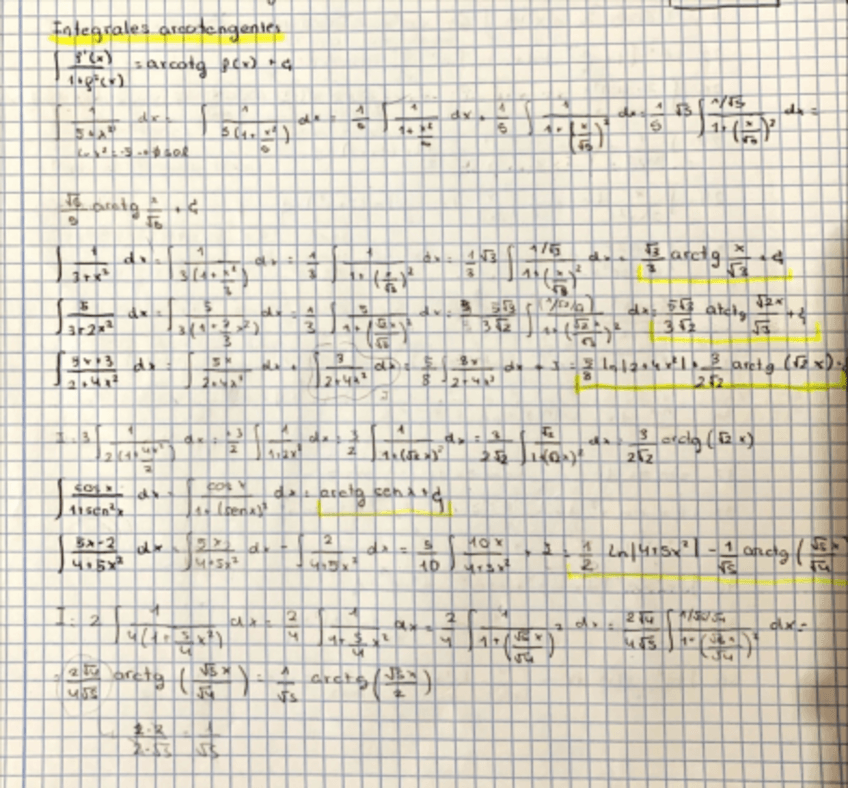 Integrales arcotangentes
∫ f'(x)/(1+f²(x)) = arcotg f(x) + C
∫ 1/(5+x²) dx = ∫ 1/(5(1+x²/5)) dx = 1/5 ∫ 1/(1+x²/5) dx = 1/5 ∫ 1/(1+(x/√5)²) dx = 1/5 √5 ∫ (1/√5)/(1+(x/√5)²) dx =
x² = -5 → ∄ sol
√5/5 arctg x/√5 + C
∫ 1/(3+x²) dx = ∫ 1/(3(1+x²/3)) dx = 1/3 ∫ 1/(1+(x/√3)²) dx = 1/3 √3 ∫ (1/√3)/(1+(x/√3)²) dx = √3/3 arctg x/√3 + C
∫ 5/(3+2x²) dx = ∫ 5/(3(1+2/3 x²)) dx = 1/3 ∫ 5/(1+(√2x/√3)²) dx = 5√3/(3√2) ∫ (√2/√3)/(1+(√2x/√3)²) dx = 5√3/(3√2) arctg √2x/√3 + C
∫ (5x+3)/(2+4x²) dx = ∫ 5x/(2+4x²) dx + ∫ 3/(2+4x²) dx = 5/8 ∫ 8x/(2+4x²) dx + I = 5/8 ln|2+4x²| + 3/(2√2) arctg (√2 x) +
I = 3 ∫ 1/(2(1+4x²/2)) dx = 3/2 ∫ 1/(1+2x²) dx = 3/2 ∫ 1/(1+(√2 x)²) dx = 3/(2√2) ∫ √2/(1+(√2x)²) dx = 3/(2√2) arctg (√2 x)
∫ cos x/(1+sen²x) dx = ∫ cos x/(1+(sen x)²) dx = arctg sen x + C
∫ (5x-2)/(4+5x²) dx = ∫ 5x/(4+5x²) dx - ∫ 2/(4+5x²) dx = 5/10 ∫ 10x/(4+5x²) + I = 1/2 Ln|4+5x²| - 1/√5 arctg (√5x/√4
I = 2 ∫ 1/(4(1+5/4 x²)) dx = 2/4 ∫ 1/(1+5/4 x²) dx = 2/4 ∫ 1/(1+(√5 x/√4)²) dx = 2√4/(4√5) ∫ (√5/√4)/(1+(√5x/√4)²) dx =
= 2√4/(4√5) arctg (√5x/√4) = 1/√5 arctg (√5x/2)
2·2/(2·√5) = 1/√5